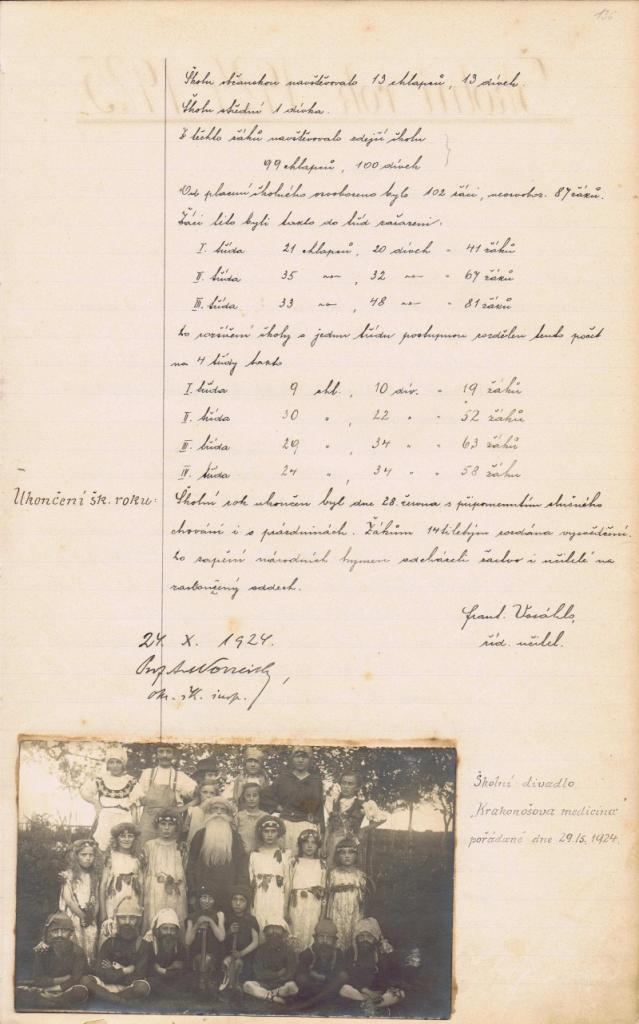 136
Školu občanskou navštěvovalo 13 chlapců, 13 dívek.
Školu střední 1 dívka.
Z těchto žáků navštěvovalo zdejší školu
99 chlapců, 100 dívek
Od placení školného osvobozeno bylo 102 žáci, neosvoboz. 87 žáků.
Žáci tito byli takto do tříd zařazeni.
I. třída 21 chlapců, 20 dívek - 41 žáků
II. třída 35 -"- , 32 -"- - 67 žáků
III. třída 33 -"- , 48 -"- - 81 žáků
Po rozšíření školy o jednu třídu postupnou rozdělen tento počet
na 4 třídy takto
I. třída 9 chl., 10 dív. - 19 žáků
II. třída 30 " , 22 " - 52 žáků
III. třída 29 " , 34 " - 63 žáků
IV. třída 24 " , 34 " - 58 žáků
Ukončení šk. roku:
Školní rok ukončen byl dne 28. června s připomenutím slušného
chování i o prázdninách. Žákům 14tiletým rozdána vysvědčení.
Po zapění národních hymen odcházeli žactvo i učitelé na
zasloužený oddech.
Frant.
říd. učitel.
24. X. 1924.
ok. šk. insp.
Školní divadlo
„Krakonošova medicina"
pořádané dne 29./5. 1924.